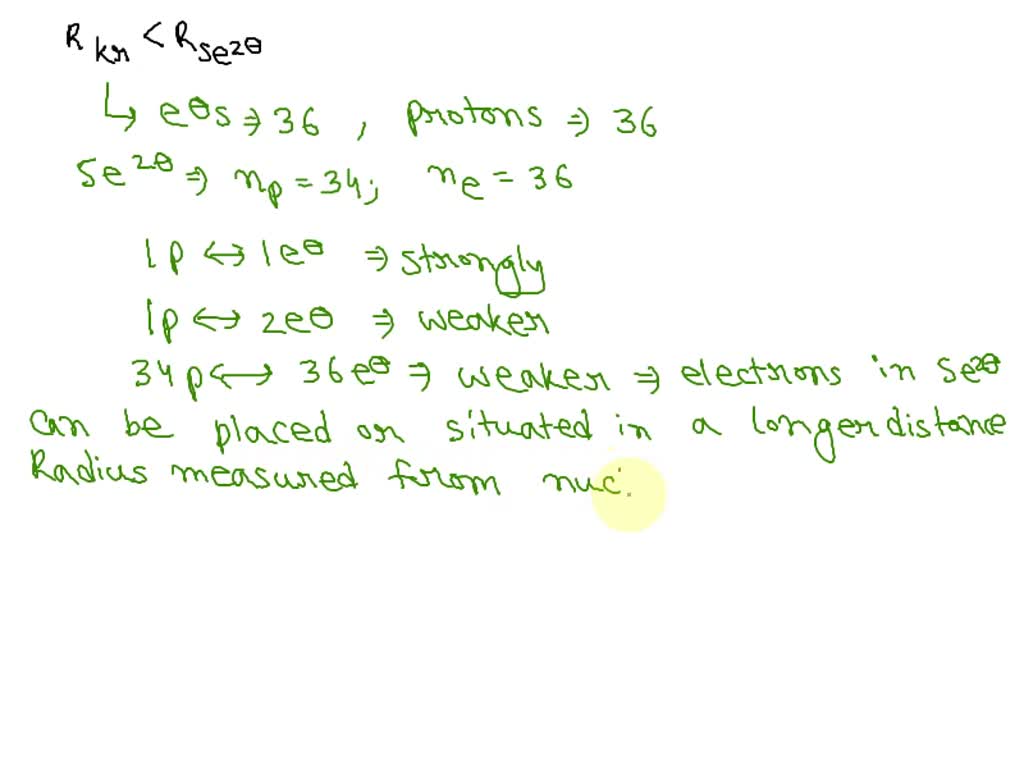 R Kr < R Se²⊖
↳ e⊖s ⇒ 36 , protons ⇒ 36
Se²⊖ ⇒ nₚ = 34; nₑ = 36
1p ↔ 1e⊖ ⇒ strongly
1p ↔ 2e⊖ ⇒ weaker
34p ↔ 36e⊖ ⇒ weaker ⇒ electrons in Se²⊖
can be placed or situated in a longer distance
Radius measured from nuc